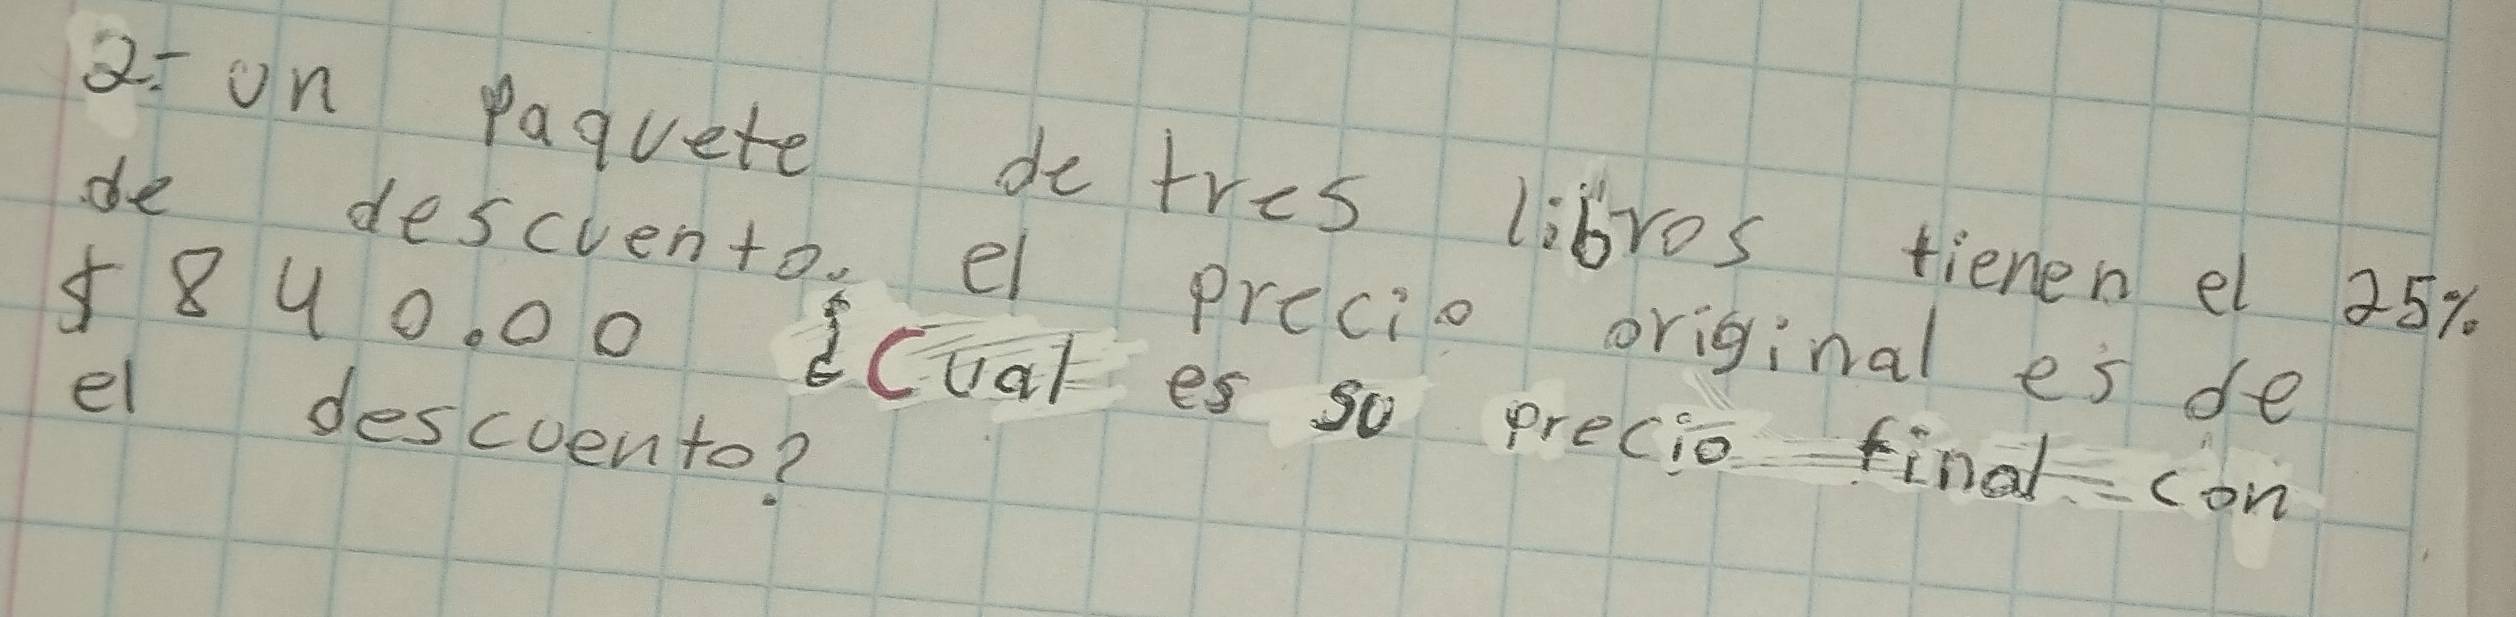 2.- un paquete de tres libros tienen el 25%
de descuento. el precio original es de
$840.00 ¿Cual es so precio final con
el descuento?